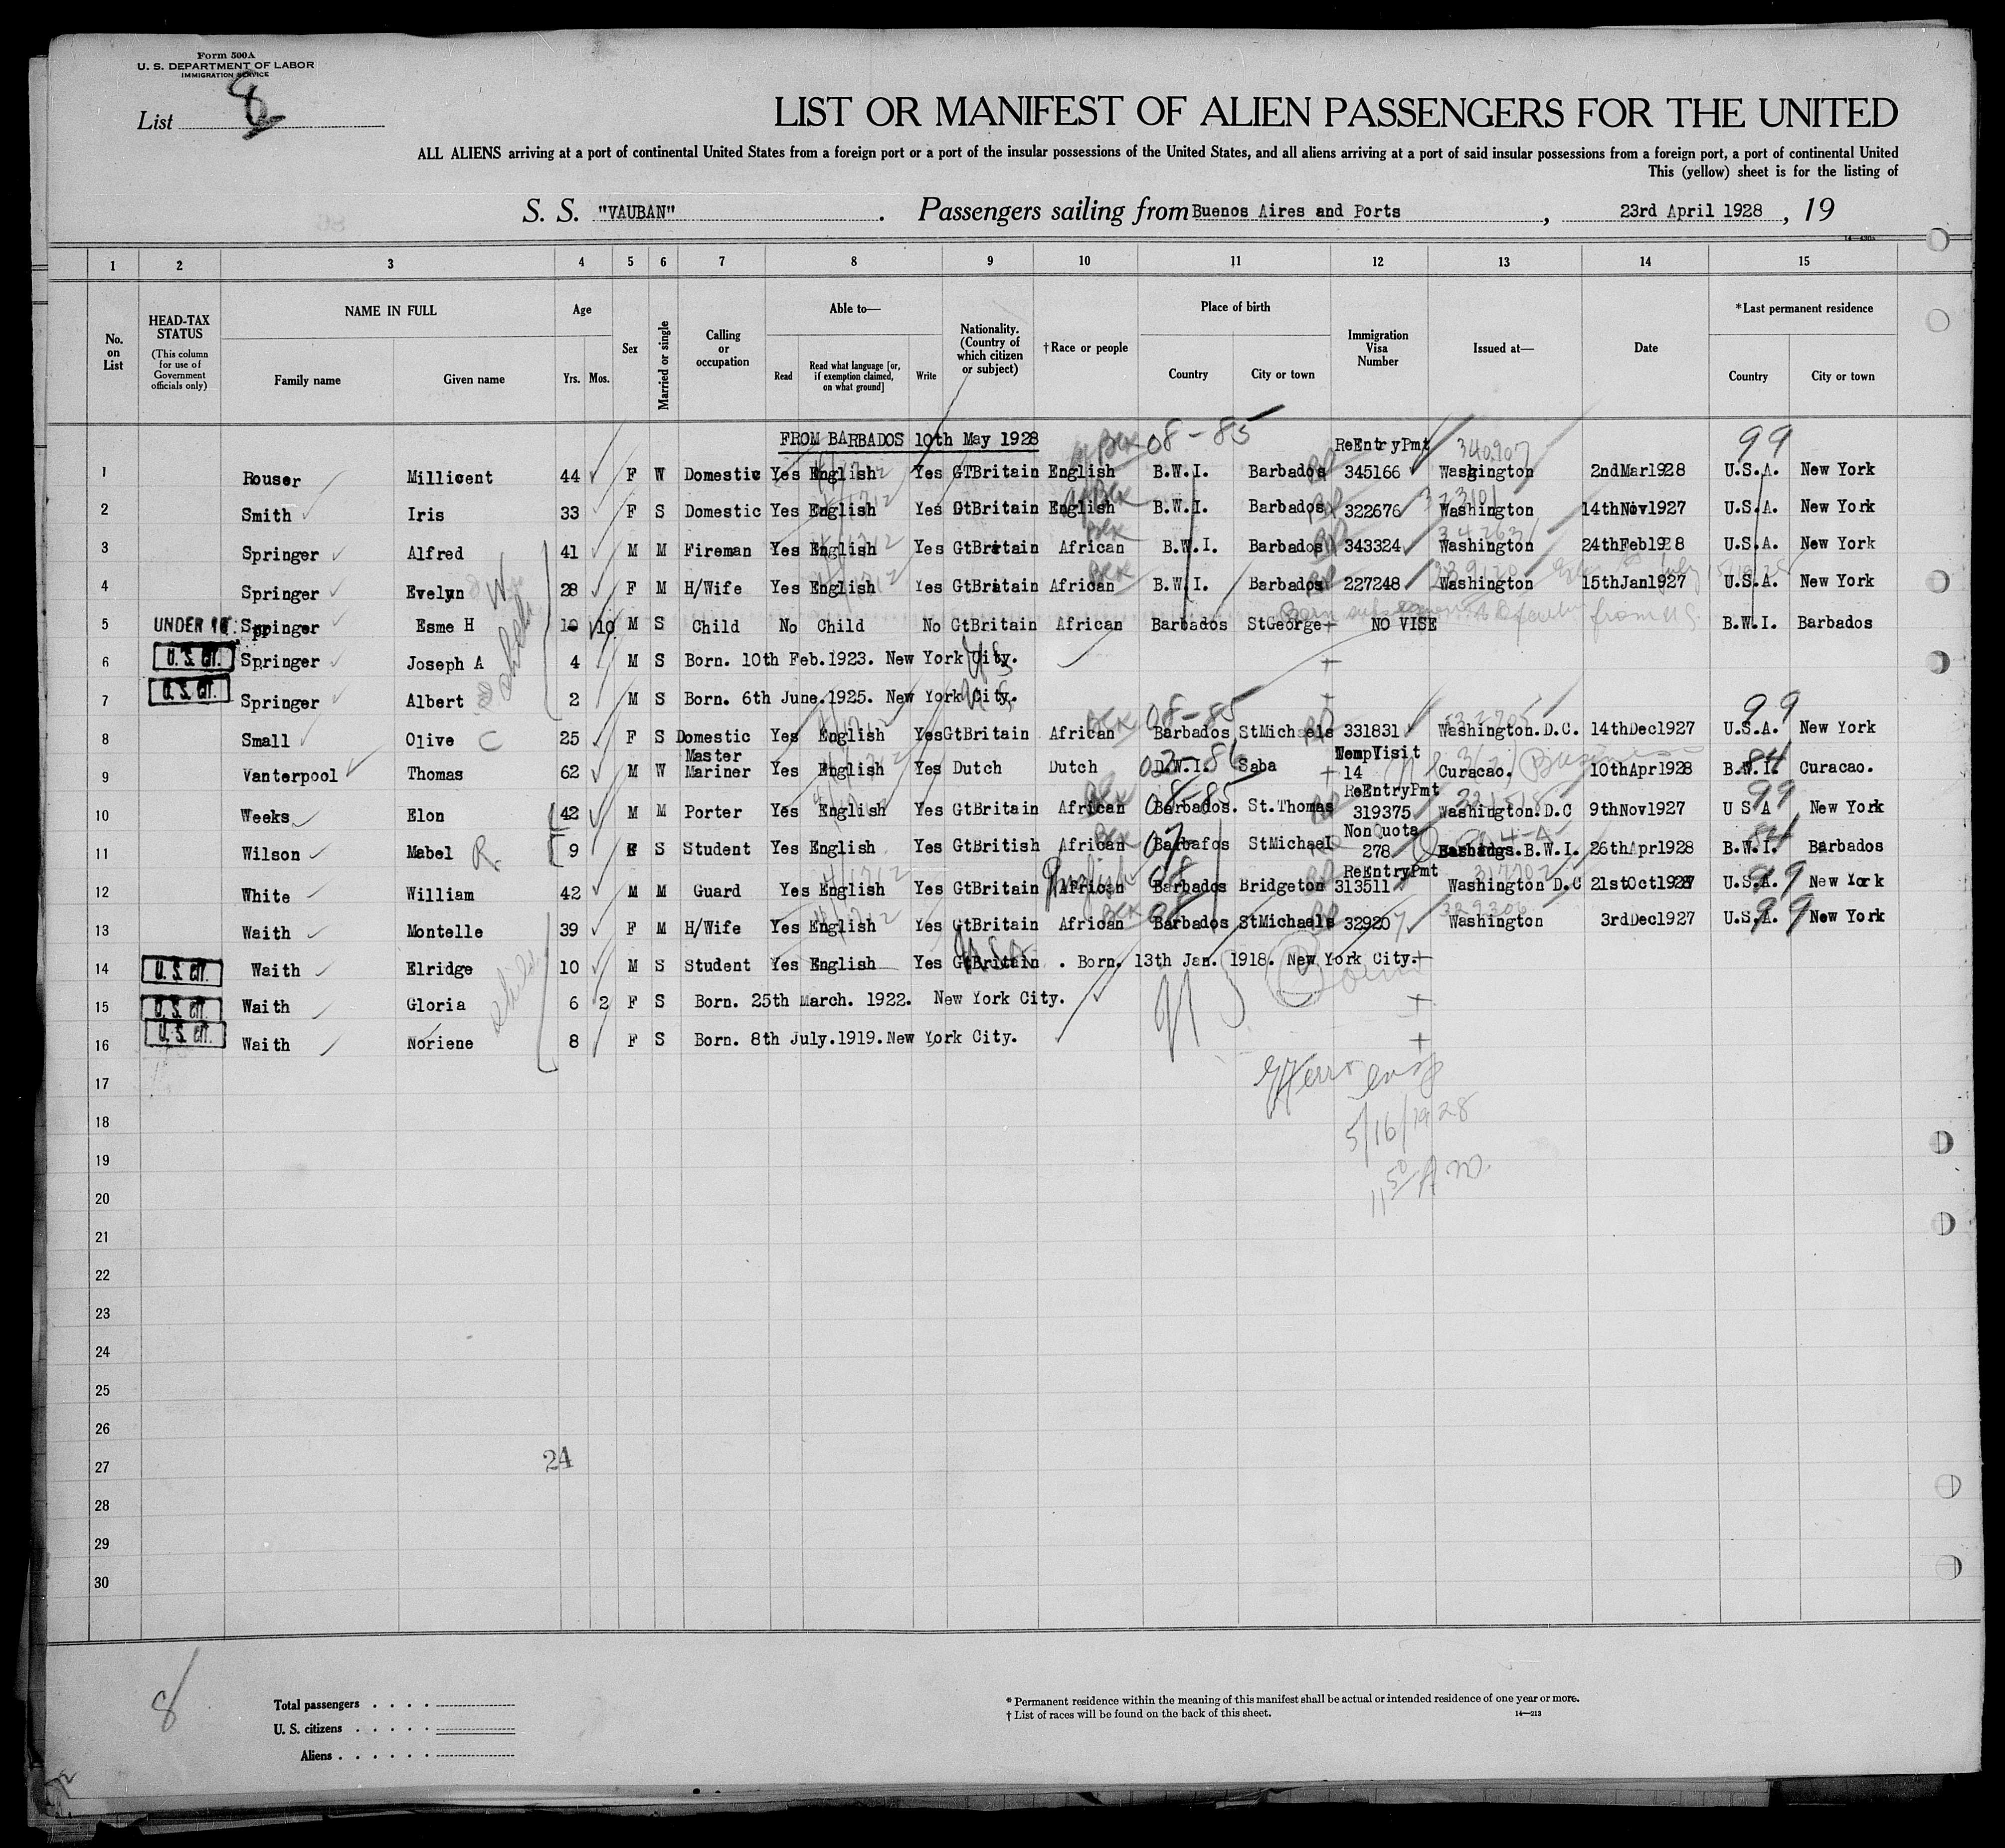 Form 500A
U. S. DEPARTMENT OF LABOR
IMMIGRATION SERVICE
List 8
LIST OR MANIFEST OF ALIEN PASSENGERS FOR THE UNITED
ALL ALIENS arriving at a port of continental United States from a foreign port or a port of the insular possessions of the United States, and all aliens arriving at a port of said insular possessions from a foreign port, a port of continental United
This (yellow) sheet is for the listing of
S. S. "VAUBAN" . Passengers sailing from Buenos Aires and Ports , 23rd April 1928 , 19
1 2 3 4 5 6 7 8 9 10 11 12 13 14 15
No. on List
HEAD-TAX STATUS
(This column for use of Government officials only)
NAME IN FULL
Family name
Given name
Age
Yrs. Mos.
Sex
Married or single
Calling or occupation
Able to—
Read
Read what language [or, if exemption claimed, on what ground]
Write
Nationality. (Country of which citizen or subject)
† Race or people
Place of birth
Country
City or town
Immigration Visa Number
Issued at—
Date
*Last permanent residence
Country
City or town
FROM BARBADOS 10th May 1928 08-85 ReEntryPmt 340907 99
1 Rouser Millicent 44 F W Domestic Yes English Yes GTBritain English B.W.I. Barbados 345166 Washington 2ndMar1928 U.S.A. New York
2 Smith Iris 33 F S Domestic Yes English Yes GtBritain English B.W.I. Barbados 322676 Washington 14thNov1927 U.S.A. New York
3 Springer Alfred 41 M M Fireman Yes English Yes GtBritain African B.W.I. Barbados 343324 Washington 24thFeb1928 U.S.A. New York
4 Springer Evelyn 28 F M H/Wife Yes English Yes GtBritain African B.W.I. Barbados 227248 Washington 15thJan1927 U.S.A. New York
5 UNDER 16 Springer Esme H 10 M S Child No Child No GtBritain African Barbados StGeorge NO VISE B.W.I. Barbados
6 U. S. CIT. Springer Joseph A 4 M S Born. 10th Feb.1923. New York City.
7 U. S. CIT. Springer Albert 2 M S Born. 6th June.1925. New York City.
08-85 99
8 Small Olive C 25 F S Domestic Yes English Yes GtBritain African Barbados StMichaels 331831 Washington.D.C. 14thDec1927 U.S.A. New York
9 Vanterpool Thomas 62 M W Master Mariner Yes English Yes Dutch Dutch D.W.I. Saba TempVisit 14 Curacao. 10thApr1928 B.W.I. Curacao.
10 Weeks Elon 42 M M Porter Yes English Yes GtBritain African Barbados. St.Thomas ReEntryPmt 319375 Washington.D.C 9thNov1927 U S A New York
11 Wilson Mabel 9 F S Student Yes English Yes GtBritish African Barbafos StMichael NonQuota 278 Barbados.B.W.I. 26thApr1928 B.W.I. Barbados
12 White William 42 M M Guard Yes English Yes GtBritain African English Barbados Bridgeton ReEntryPmt 313511 Washington D.C 21stOct1927 U.S.A. New York
13 Waith Montelle 39 F M H/Wife Yes English Yes GtBritain African Barbados StMichaels 32920 7 329306 Washington 3rdDec1927 U.S.A. New York
14 U. S. CIT. Waith Elridge 10 M S Student Yes English Yes GtBritain . Born. 13th Jan. 1918. New York City.
15 U. S. CIT. Waith Gloria 6 2 F S Born. 25th March. 1922. New York City.
16 U. S. CIT. Waith Noriene 8 F S Born. 8th July.1919. New York City.
17
5/16/1928
18
19
11 50 AM.
20
21
22
23
24
25
26
24
27
28
29
30
8
Total passengers
U. S. citizens
Aliens
* Permanent residence within the meaning of this manifest shall be actual or intended residence of one year or more.
† List of races will be found on the back of this sheet.
14—213